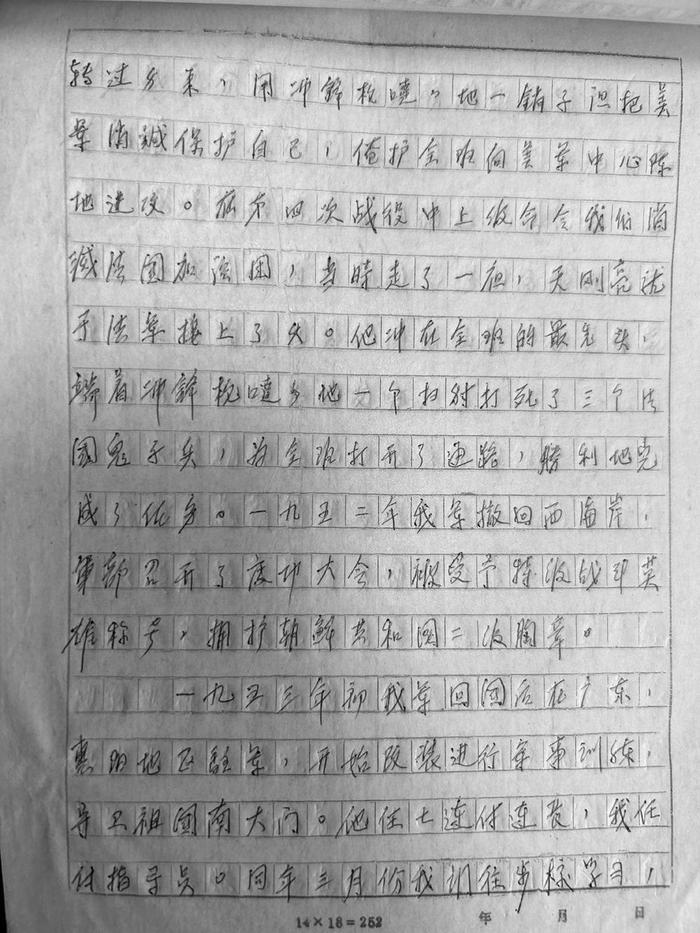 转过身来，用冲锋枪哒哒地一销子但把美
军消诚保护自己，俺护全班向美军中心陈
地进攻。在第四次战役中上级命令我们消
诚法国加强团，当時走了一夜，天刚亮就
于法军接上了火。他冲在全班的最先头，
端着冲锋枪哒哒地一个扫射打死了三个法
国鬼子兵，为全班打开了通路，勝利地完
成了任务。一九五二年我军撤回西海岸，
军部召开了庆功大会，被受予特级战斗英
雄称号，拥护朝鲜共和国二级胸章。
一九五三年初我军回国后在广东，
惠阳地区駐军，开始改装进行军事训练，
守卫祖国南大门。他任七连付连长，我任
付指导员。同年三月份我们往步校学习，
14×18=252 年 月 日